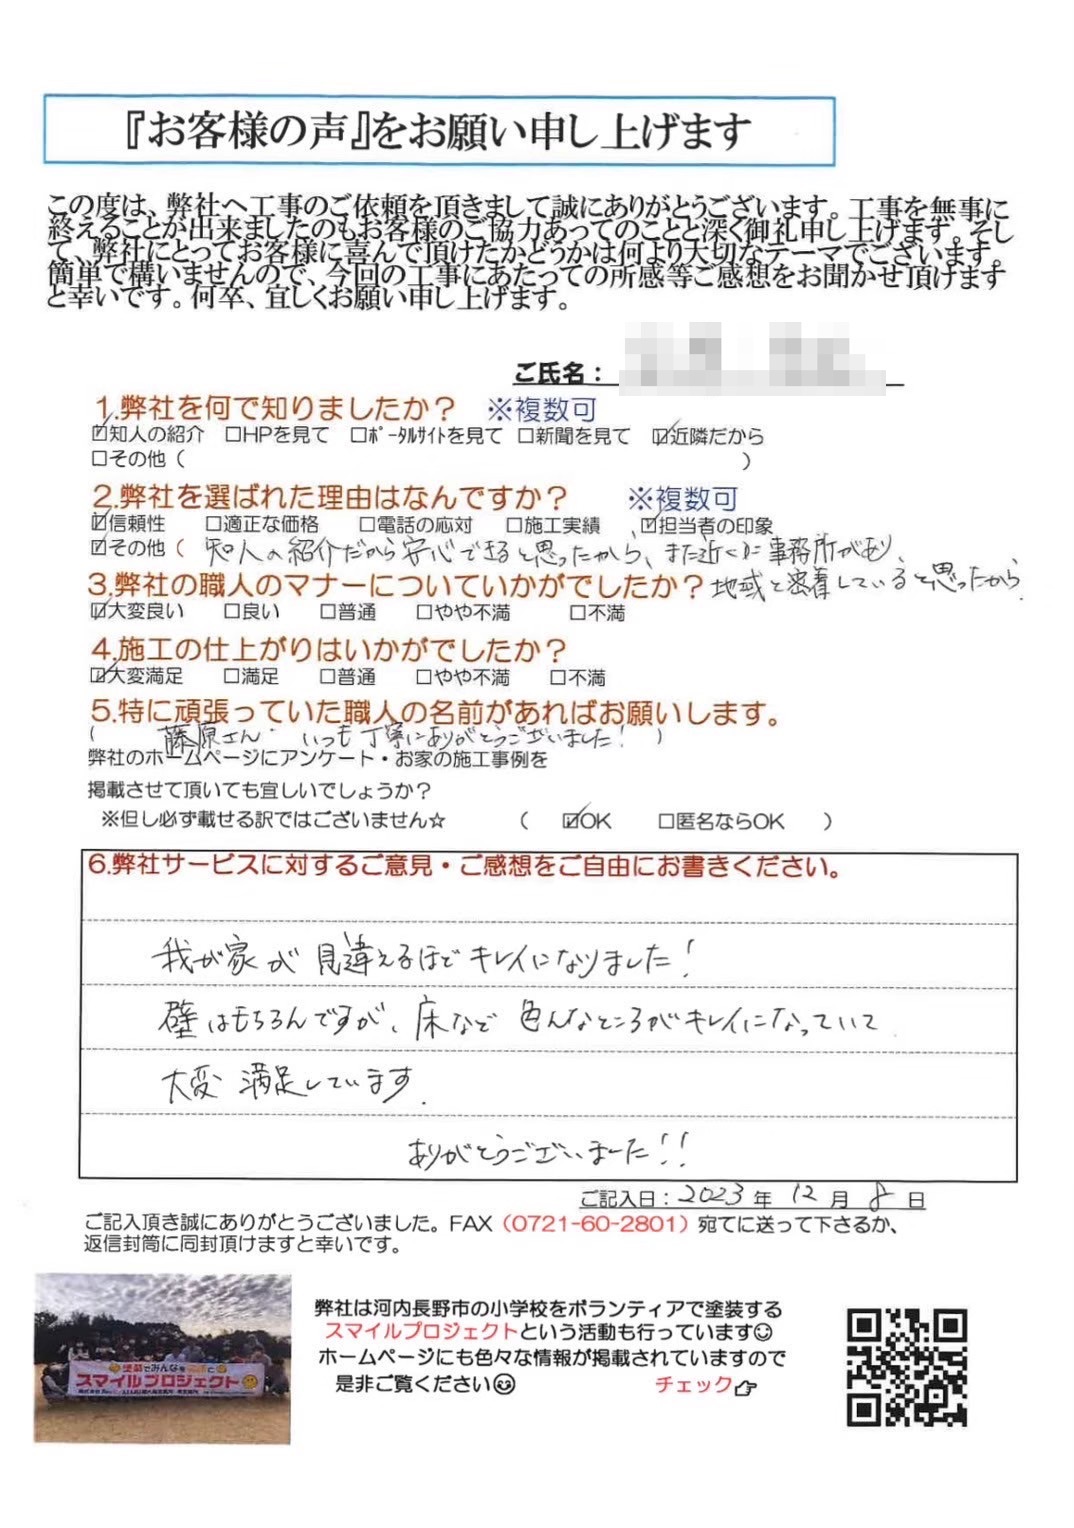 『お客様の声』をお願い申し上げます
この度は、弊社へ工事のご依頼を頂きまして誠にありがとうございます。工事を無事に
終えることが出来ましたのもお客様のご協力あってのことと深く御礼申し上げます。そし
て、弊社にとってお客様に喜んで頂けたかどうかは何より大切なテーマでございます。
簡単で構いませんので、今回の工事にあたっての所感等ご感想をお聞かせ頂けます
と幸いです。何卒、宜しくお願い申し上げます。
ご氏名：
1.弊社を何で知りましたか？ ※複数可
☑知人の紹介 □HPを見て □ﾎﾟｰﾀﾙｻｲﾄを見て □新聞を見て ☑近隣だから
□その他（ ）
2.弊社を選ばれた理由はなんですか？ ※複数可
☑信頼性 □適正な価格 □電話の応対 □施工実績 ☑担当者の印象
☑その他（ 知人の紹介だから安心できると思ったから、また近くに事務所があり、
地域と密着していると思ったから.
3.弊社の職人のマナーについていかがでしたか？
☑大変良い □良い □普通 □やや不満 □不満
4.施工の仕上がりはいかがでしたか？
☑大変満足 □満足 □普通 □やや不満 □不満
5.特に頑張っていた職人の名前があればお願いします。
（ 藤原さん. いつも丁寧にありがとうございました! ）
弊社のホームページにアンケート・お家の施工事例を
掲載させて頂いても宜しいでしょうか？
※但し必ず載せる訳ではございません☆ （ ☑OK □匿名ならOK ）
6.弊社サービスに対するご意見・ご感想をご自由にお書きください。
我が家が見違えるほどキレイになりました!
壁はもちろんですが、床など色んなところがキレイになっていて
大変満足しています.
ありがとうございました!!
ご記入日：2023年 12月 8日
ご記入頂き誠にありがとうございました。FAX（0721-60-2801）宛てに送って下さるか、
返信封筒に同封頂けますと幸いです。
塗装でみんなを笑顔に
スマイルプロジェクト
弊社は河内長野市の小学校をボランティアで塗装する
スマイルプロジェクトという活動も行っています☺
ホームページにも色々な情報が掲載されていますので
是非ご覧ください☺ チェック☞